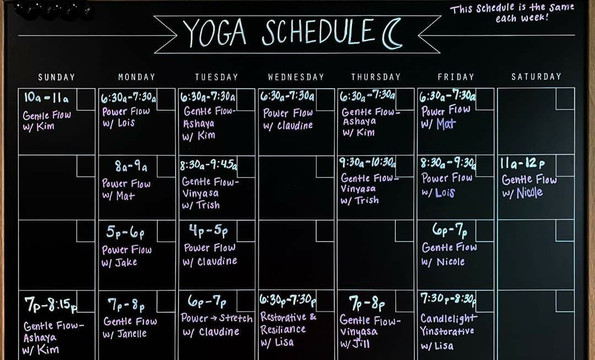 This Schedule is the same
each week!
YOGA SCHEDULE
SUNDAY MONDAY TUESDAY WEDNESDAY THURSDAY FRIDAY SATURDAY
10a-11a
Gentle Flow
w/ Kim
6:30a-7:30a
Power Flow
w/ Lois
6:30a-7:30a
Gentle Flow-
Ashaya
w/ Kim
6:30a-7:30a
Power Flow
w/ Claudine
6:30a-7:30a
Gentle Flow-
Ashaya
w/ Kim
6:30a-7:30a
Power Flow
w/ Mat
8a-9a
Power Flow
w/ Mat
8:30a-9:45a
Gentle Flow-
Vinyasa
w/ Trish
9:30a-10:30a
Gentle Flow-
Vinyasa
w/ Trish
8:30a-9:30a
Power Flow
w/ Lois
11a-12p
Gentle Flow
w/ Nicole
5p-6p
Power Flow
w/ Jake
4p-5p
Power Flow
w/ Claudine
6p-7p
Gentle Flow
w/ Nicole
7p-8:15p
Gentle Flow-
Ashaya
w/ Kim
7p-8p
Gentle Flow
w/ Janelle
6p-7p
Power → Stretch
w/ Claudine
6:30p-7:30p
Restorative &
Resiliance
w/ Lisa
7p-8p
Gentle Flow-
Vinyasa
w/ Jill
7:30p-8:30p
Candlelight
Yinstorative
w/ Lisa